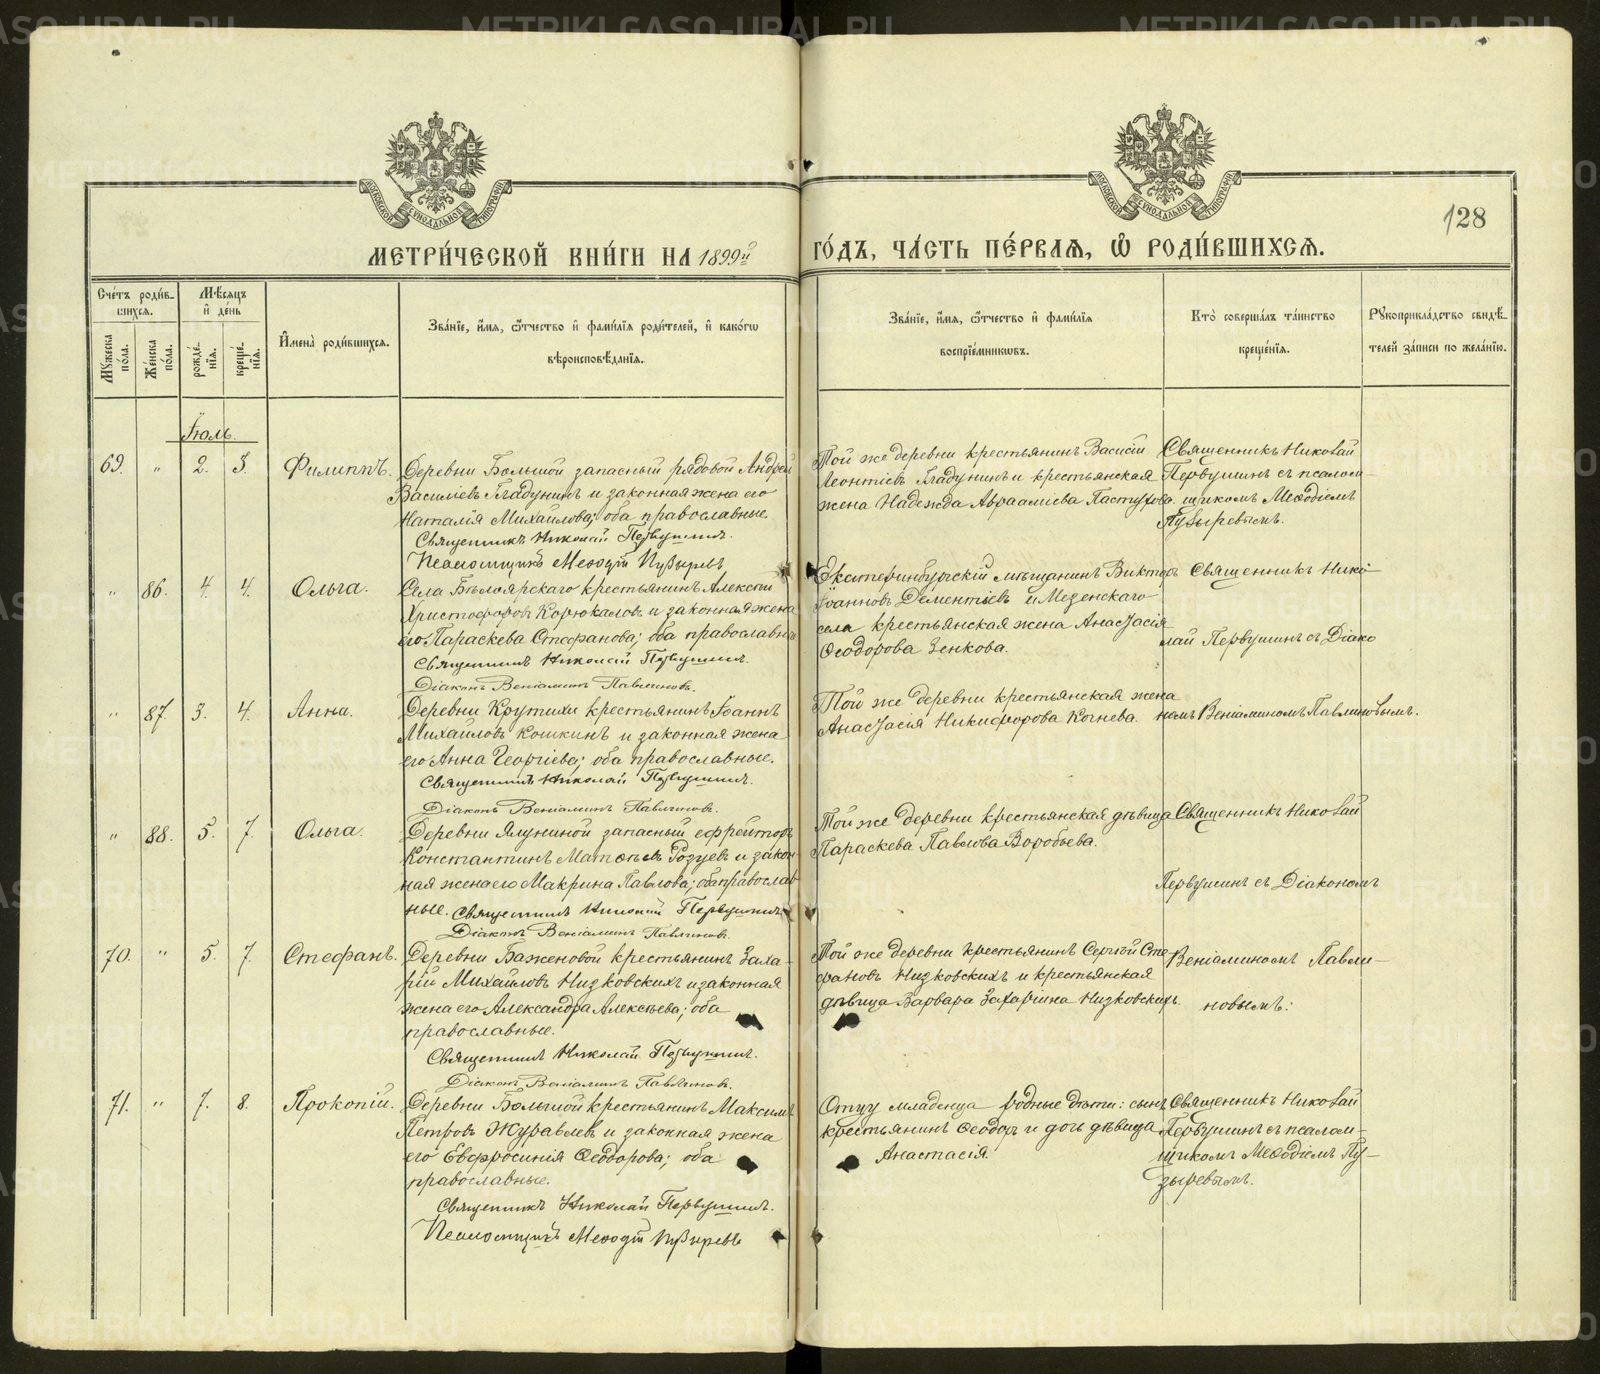 METRIKI.GASO-URAL.RU
МОСКОВСКОЙ СѴНОДАЛЬНОЙ ТИПОГРАФІИ
МОСКОВСКОЙ СѴНОДАЛЬНОЙ ТИПОГРАФІИ
128
МЕТРИ́ЧЕСКОЙ КНИ́ГИ НА 1899й ГО́ДЪ, ЧА́СТЬ ПЕ́РВАѦ, Ѽ РОДИ́ВШИХСѦ.
Счётъ роди́в-
шихся.
Мꙋжеска по́ла.
Же́нска по́ла.
Мѣ́сяцъ и҆ де́нь
рожде́нїя.
креще́нїя.
И҆мена̀ роди́вшихся.
Зва́нїе, и҆́мя, ѻ҆́тчество и҆ фами́лїя роди́телей, и҆ како́гѡ
вѣроисповѣ́данїя.
Зва́нїе, и҆́мя, ѻ҆́тчество и҆ фами́лїя
воспрїе́мникѡвъ.
Кто̀ соверша́лъ та́инство
креще́нїя.
Рꙋкоприкла́дство свидѣ́-
телей за́писи по жела́нїю.
Іюль.
69. " 2. 3. Филиппъ. Деревни Большой запасный рядовой Андрей
Василіевъ Гладунинъ и законная жена его
Наталія Михайлова; оба православные.
Священникъ Николай Первушинъ.
Псаломщикъ Меѳодій Пузыревъ
Той же деревни крестьянинъ Василій
Леонтіевъ Гладунинъ и крестьянская
жена Надежда Авраамиева Пастухова.
Священникъ Николай
Первушинъ съ псалом-
щикомъ Меѳодіемъ
Пузыревымъ.
" 86. 4. 4. Ольга. Села Бѣлоярскаго крестьянинъ Алексѣй
Христофоровъ Корюкаловъ и законная жена
его Параскева Стефанова; оба православные
Священникъ Николай Первушинъ.
Діаконъ Веніаминъ Павлиновъ.
Екатеринбургскій мѣщанинъ Викторъ
Іоанновъ Дементіевъ и Мезенскаго
села крестьянская жена Анастасія
Ѳеодорова Зенкова.
Священникъ Нико-
лай Первушинъ съ Діако
" 87. 3. 4. Анна. Деревни Крутихи крестьянинъ Іоаннъ
Михайловъ Кошкинъ и законная жена
его Анна Георгіева; оба православные.
Священникъ Николай Первушинъ.
Діаконъ Веніаминъ Павлиновъ.
Той же деревни крестьянская жена
Анастасія Никифорова Кочнева.
номъ Веніаминомъ Павлиновымъ.
" 88. 5. 7. Ольга. Деревни Ялуниной запасный ефрейторъ
Константинъ Матѳеевъ и закон-
ная жена его Макрина Павлова; оба православ
ные. Священникъ Николай Первушинъ
Діаконъ Веніаминъ Павлиновъ.
Той же деревни крестьянская дѣвица
Параскева Павлова Воробьева.
Священникъ Николай
Первушинъ съ Діакономъ
70. " 5. 7. Стефанъ. Деревни Баженовой крестьянинъ Заха-
рій Михайловъ Низковскихъ и законная
жена его Александра Алексѣева; оба
православные.
Священникъ Николай Первушинъ.
Діаконъ Веніаминъ Павлиновъ.
Той же деревни крестьянинъ Сергѣй Сте-
фановъ Низковскихъ и крестьянская
дѣвица Варвара Захаріина Низковскихъ.
Веніаминомъ Павли-
новымъ:
71. " 7. 8. Прокопій. Деревни Большой крестьянинъ Максимъ
Петровъ Журавлевъ и законная жена
его Евфросинія Ѳеодорова; оба
православные.
Священникъ Николай Первушинъ.
Псаломщикъ Меѳодій Пузыревъ
Отцу младенца родные дѣти: сынъ
крестьянинъ Ѳеодоръ и дочь дѣвица
Анастасія.
Священникъ Николай
Первушинъ съ псалом-
щикомъ Меѳодіемъ Пу-
зыревымъ.